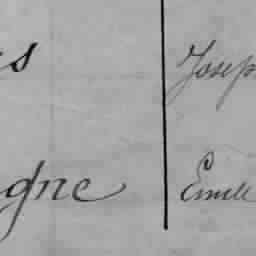 s Joseph
gne Emile